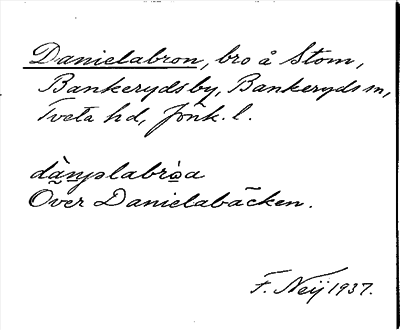 Danielabron, bro å Stom,
Bankeryds by, Bankeryds sn,
Tveta hd, Jönk. l.
dàn̥ɩ̯elabrò̱a
Över Danielabäcken.
F. Neij 1937.